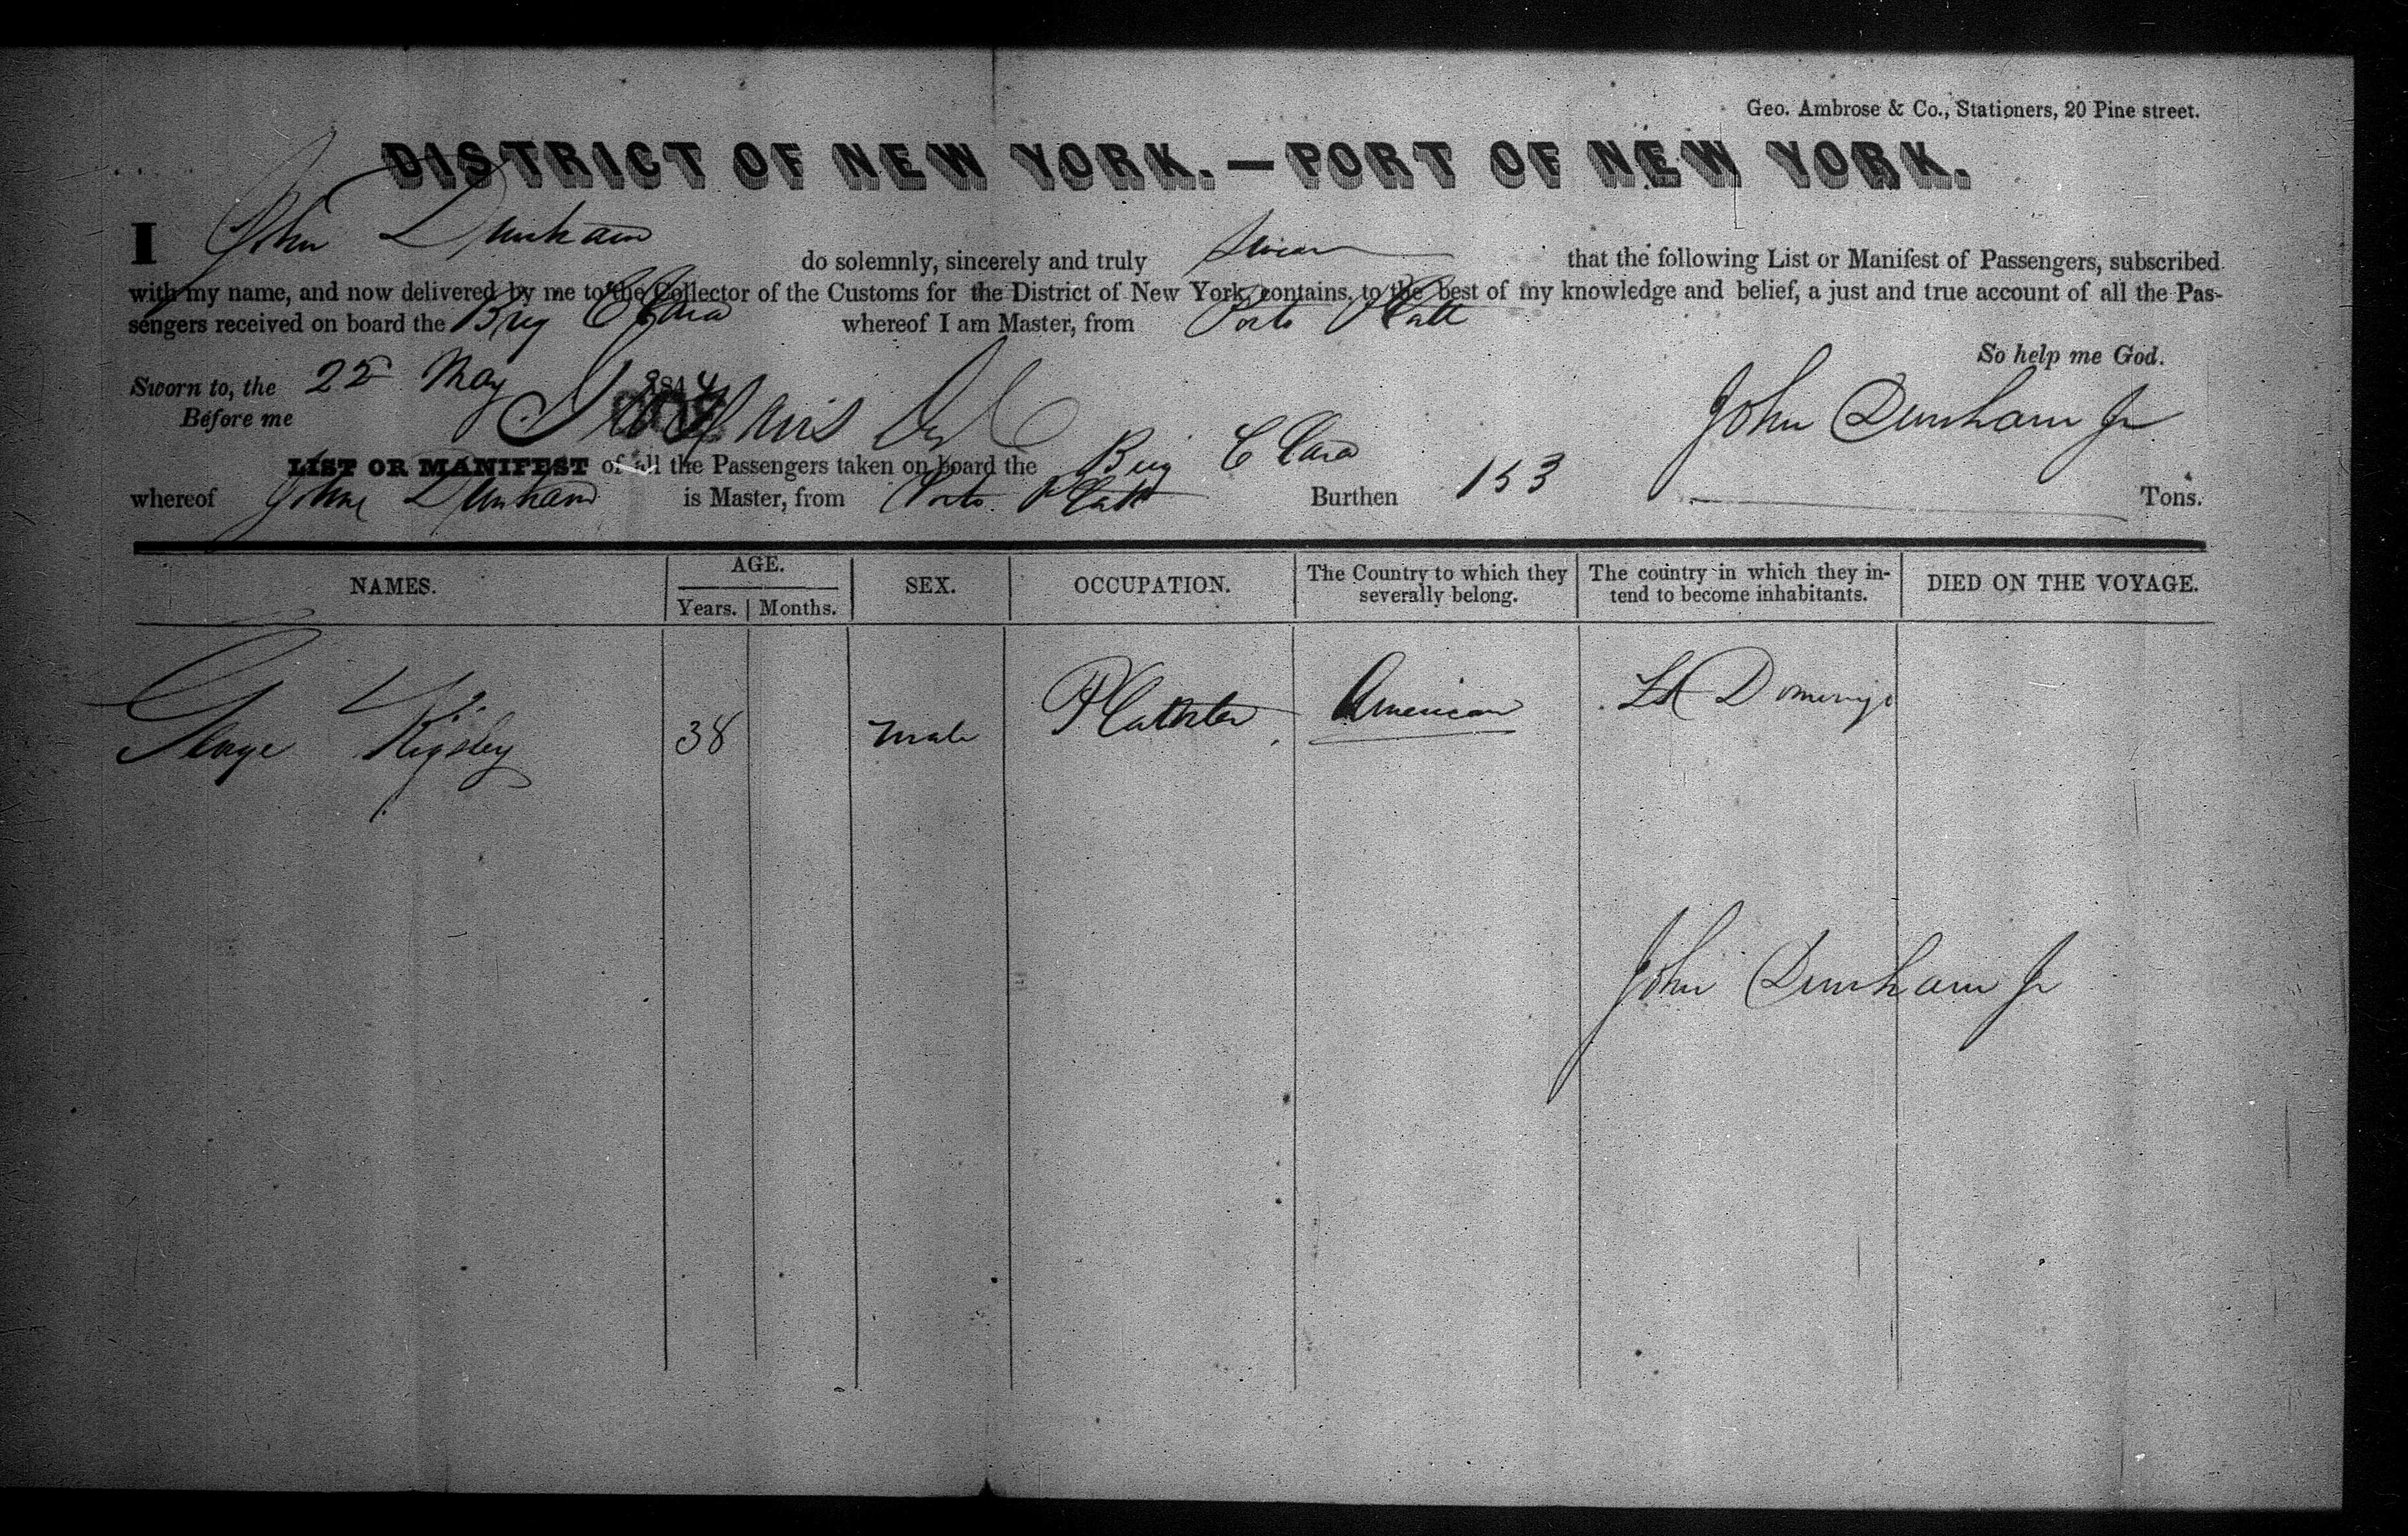 Geo. Ambrose & Co., Stationers, 20 Pine street.
DISTRICT OF NEW YORK.—PORT OF NEW YORK.
I John Dunham do solemnly, sincerely and truly swear that the following List or Manifest of Passengers, subscribed
with my name, and now delivered by me to the Collector of the Customs for the District of New York, contains, to the best of my knowledge and belief, a just and true account of all the Pas-
sengers received on board the Brig Clara whereof I am Master, from Porto Platt
So help me God.
Sworn to, the 22 May
Before me
John Dunham Jr
LIST OR MANIFEST of all the Passengers taken on board the Brig Clara
whereof John Dunham is Master, from Porto Platt Burthen 153 Tons.
NAMES. AGE. Years. Months. SEX. OCCUPATION. The Country to which they severally belong. The country in which they in-tend to become inhabitants. DIED ON THE VOYAGE.
George Kigsley 38 Male American St Domingo
John Dunham Jr